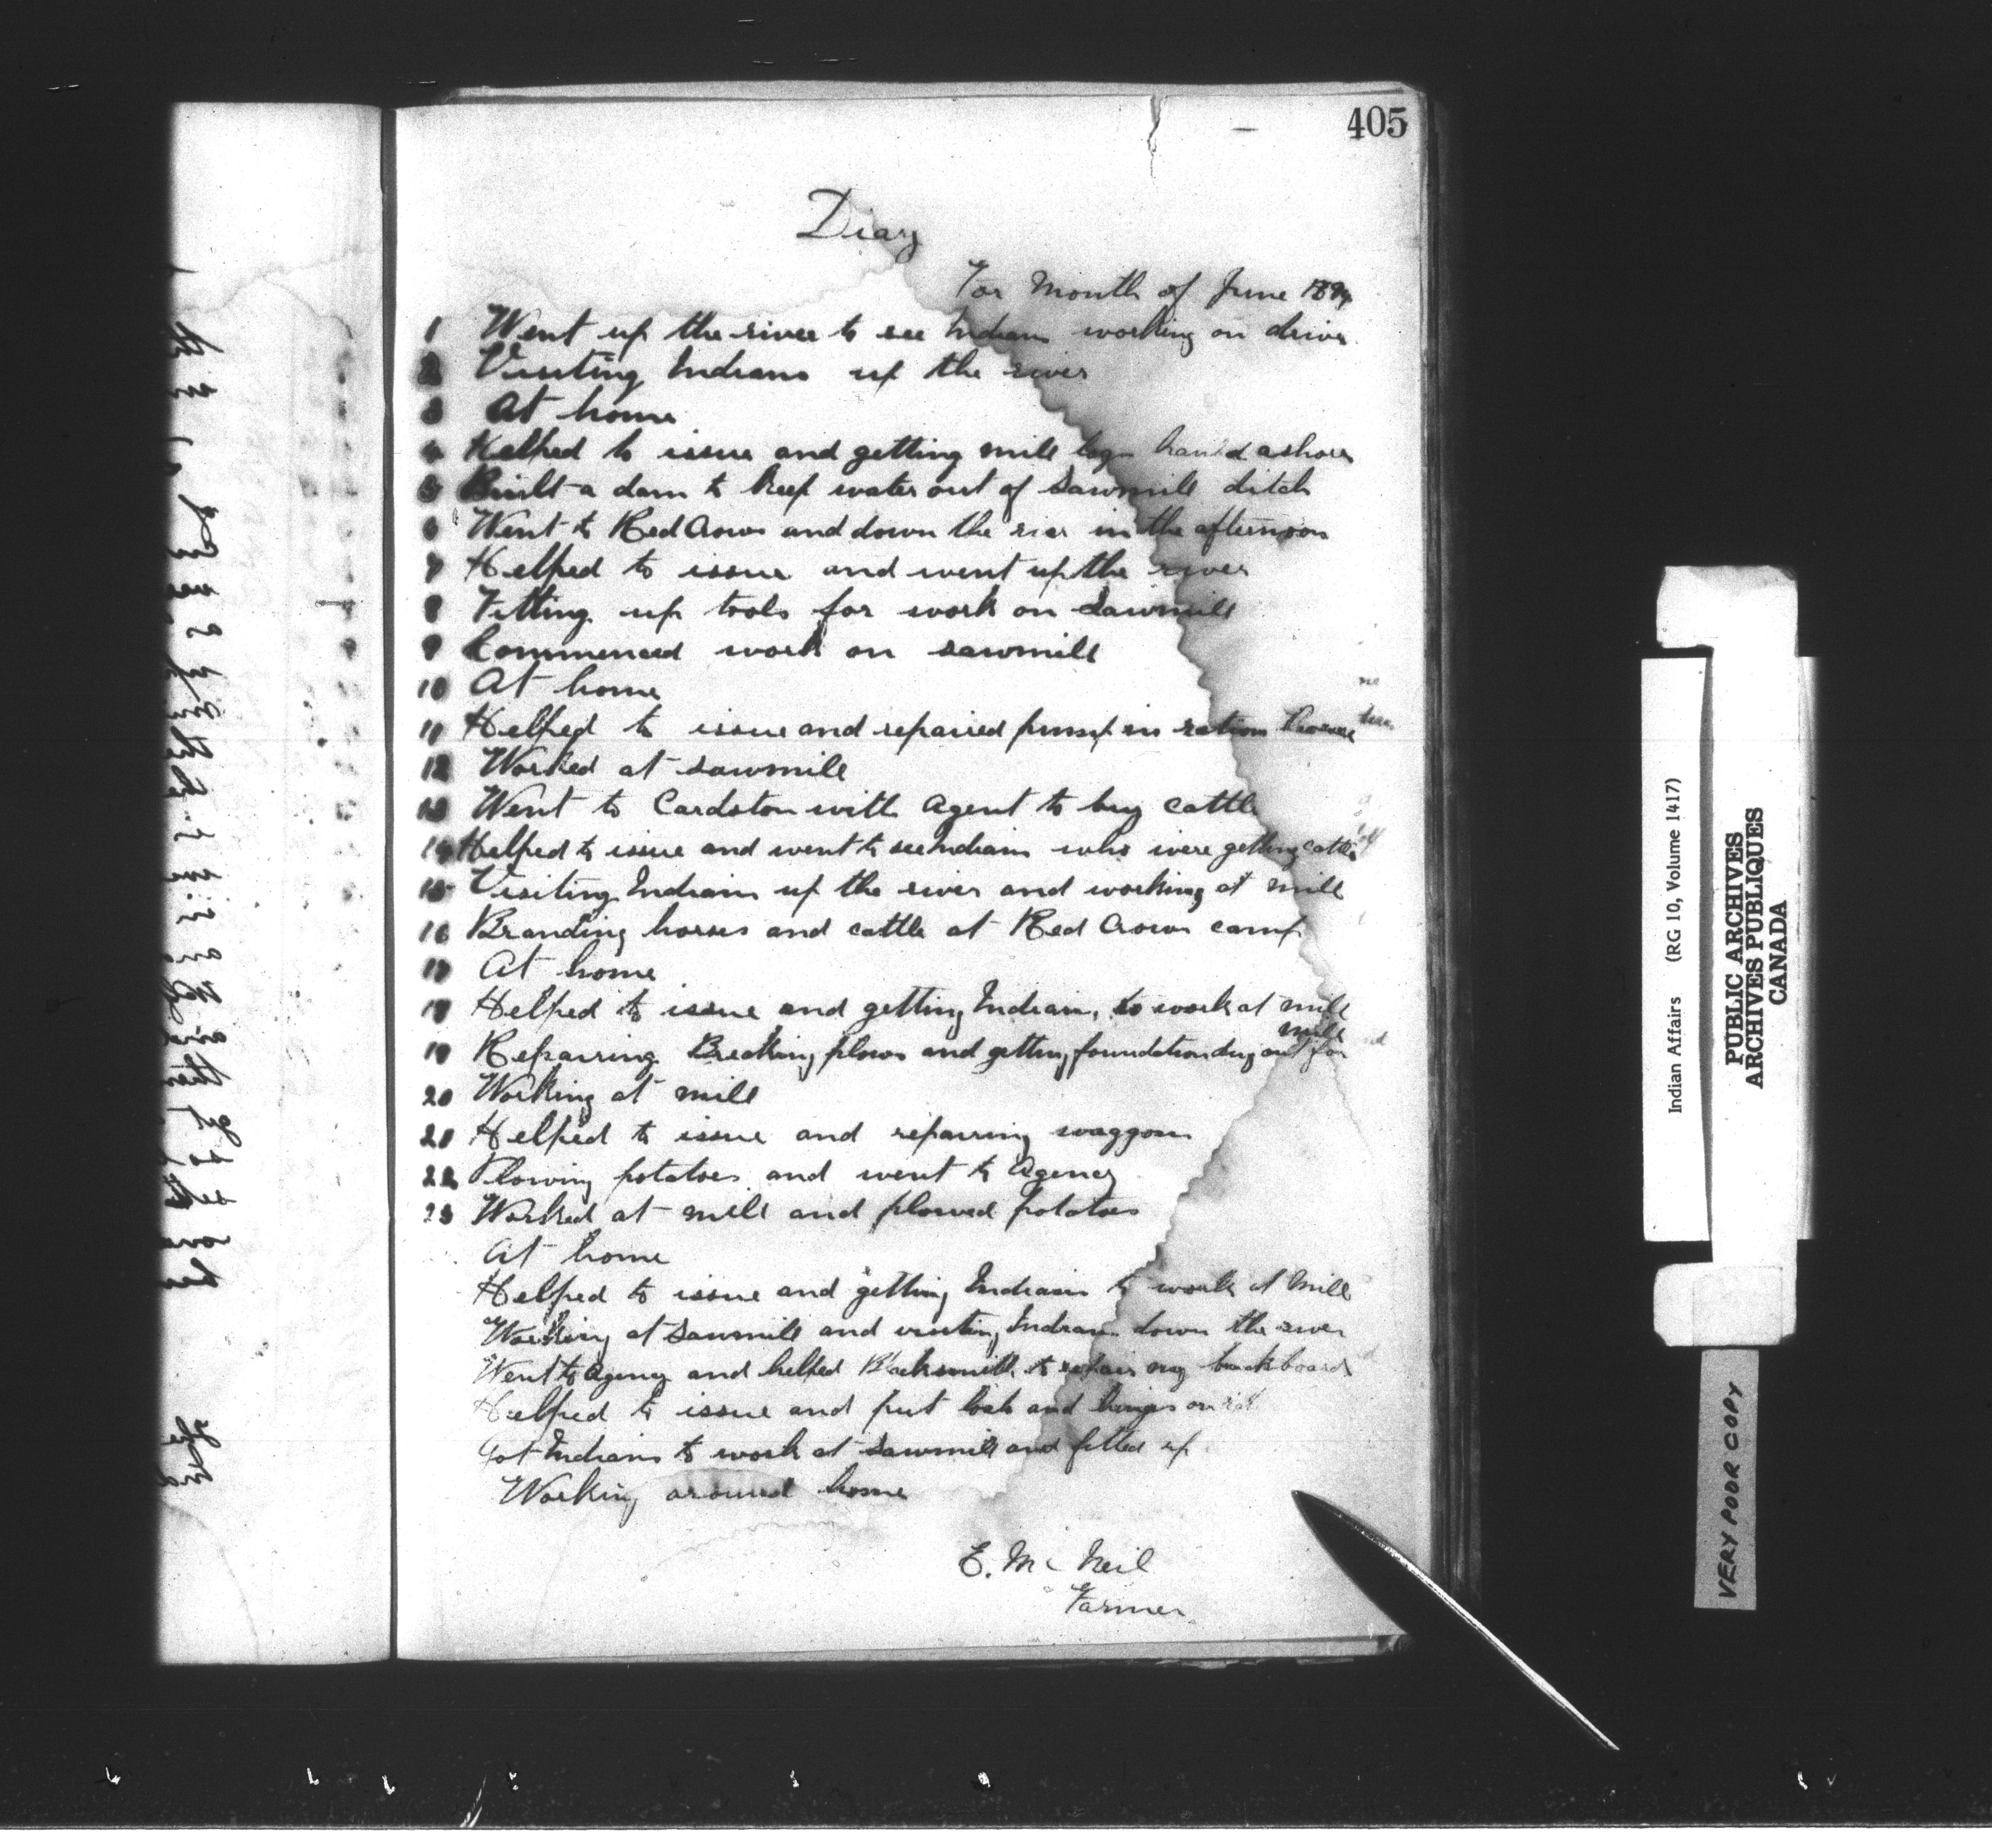 405
Diary
For Month of June 1894
1 Went up the river to see Indians working on drive
2 Visiting Indians up the river
3 At home
4 Helped to issue and getting mill logs hauld ashore
5 Built a dam to keep water out of Sawmill ditch
6 Went to Red Crows and down the river in the afternoon
7 Helped to issue and went up the river
8 Fitting up tools for work on Sawmill
9 Commenced work on sawmill
10 At home
11 Helped to issue and repaired pump in ration
12 Worked at sawmill
13 Went to Cardston with Agent to buy cattle
14 Helped to issue and went to see Indians who were getting cattle
15 Visiting Indians up the river and working at mill
16 Branding horses and cattle at Red Crows camp
17 At home
18 Helped to issue and getting Indians to work at mill
19 Repairing Breaking plows and getting foundation dug out for mill
20 Working at mill
21 Helped to issue and repairing waggons
22 Plowing potatoes and went to Agency
23 Worked at mill and plowed potatoes
At home
Helped to issue and getting Indians to work at Mill
Working at Sawmill and visiting Indians down the river
Went to Agency and helped Blacksmith to repair my buckboard
Helped to issue and put and hinges on
Got Indians to work at Sawmill and filled up
Working around home
E. McNeil
Farmer
Indian Affairs (RG 10, Volume 1417)
PUBLIC ARCHIVES
ARCHIVES PUBLIQUES
CANADA
VERY POOR COPY